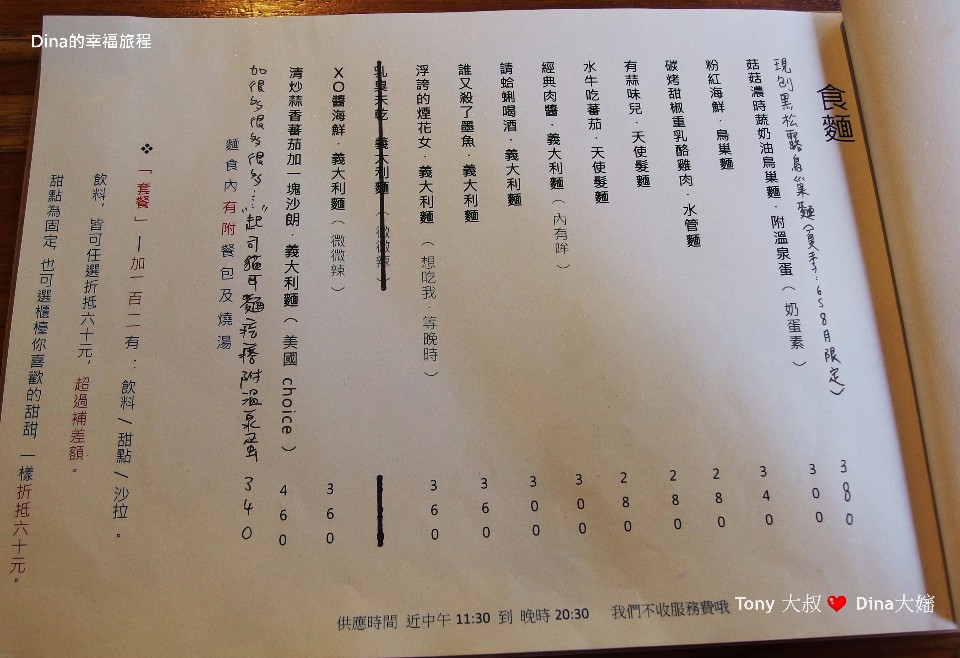 Dina的幸福旅程
食麵
現刨黑松露鳥巢麵(夏季:6~8月限定) 380
菇菇濃時蔬奶油鳥巢麵．附溫泉蛋（奶蛋素） 300
粉紅海鮮．鳥巢麵 340
碳烤甜椒重乳酪雞肉．水管麵 280
有蒜味兒．天使髮麵 280
水牛吃蕃茄．天使髮麵 280
經典肉醬．義大利麵（內有哞） 300
請蛤蜊喝酒．義大利麵 300
誰又殺了墨魚．義大利麵 360
浮誇的煙花女．義大利麵（想吃我．等晚時） 360
乳臭未乾．義大利麵（微微辣）
XO醬海鮮．義大利麵（微微辣） 360
清炒蒜香蕃茄加一塊沙朗．義大利麵（美國 choice） 460
加很多很多很多…"起司貓耳麵疙瘩附溫泉蛋 340
麵食內有附餐包及燒湯
❖「套餐」—加一百二有：飲料/甜點/沙拉。
飲料，皆可任選折抵六十元，超過補差額。
甜點為固定，也可選櫃檯你喜歡的甜甜，一樣折抵六十元。
供應時間 近中午 11:30 到 晚時 20:30 我們不收服務費哦
Tony 大叔 ❤ Dina大嬸